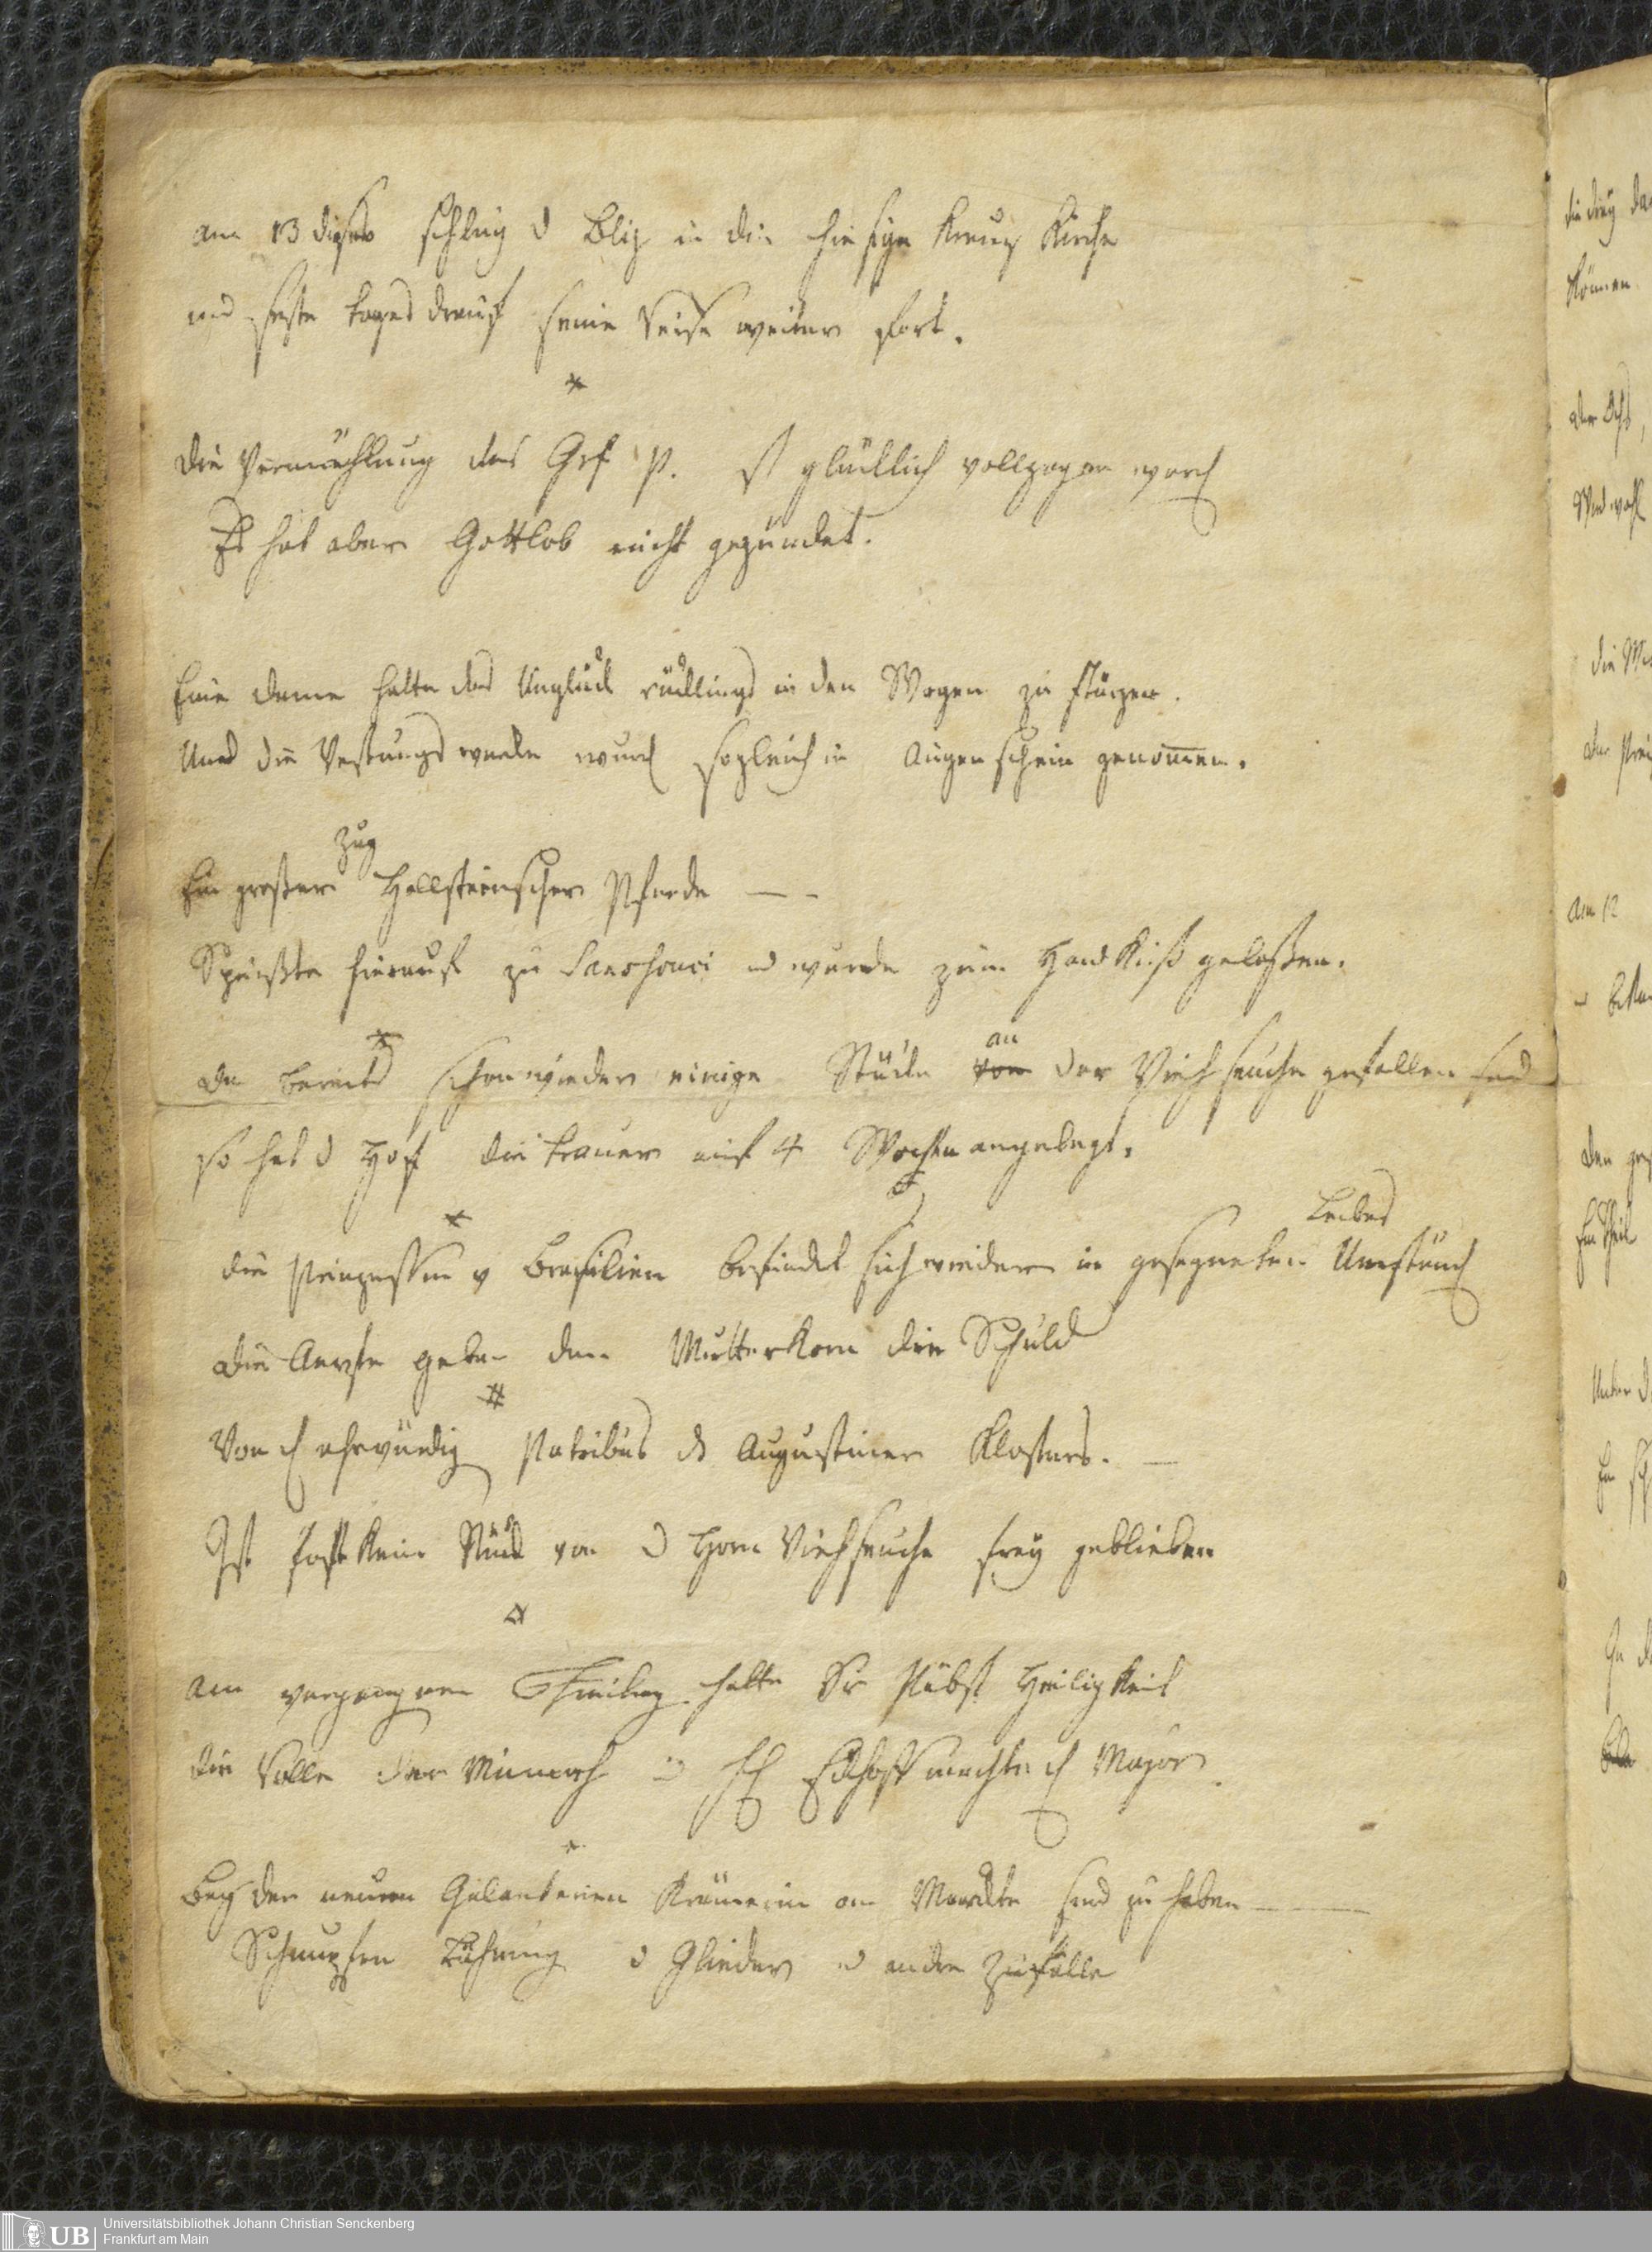 am 13 dieses schlug d Bliz in die hiesige Kreuz Kirche
und sezte tages drauf seine Reise weiter fort.
*
die Vermählung des Grf P. ist glücklich vollzogen word
Es hat aber Gottlob nicht gezündet.
Eine dame hatte das Unglück rücklings in den Wagen zu stürzen.
Und die Vestungs werke wurd sogleich in Augenschein genommen.
Zug
Ein großer Hollsteinscher Pferde — -
Speißte hierauf zu Sanssouci u wurde zum Handkuß gelaßen.
*
an
da bereits schon wieder einige Stücke von der Viehseuche gefallen sind
so hat d Hof die trauer auf 4 Wochen angelegt.
*
Leibes
die Prinzessin v Brasilien befindet sich wieder in gesegneten Umständ
die Aerzte geben dem Mutterkorn die Schuld
#
Von d ehrwürdig Patribus ds Augustiner Klosters. —
Ist fast kein Stück von d Horn Viehseuche frey geblieben
*
am vergangnen hatte Sr Päbst Heiligkeit
die Rolle der u H Eckhoff machte d Major.
*
Bey der neuen Galanterien Krämerin am Markte sind zu haben ———
Schnupfen Lähmung d Glieder u andre Zufälle
die drey
können
der Ochs,
Und wohl
am 12
Ein Theil
Unter d
In d
Universitätsbibliothek Johann Christian Senckenberg
UB Frankfurt am Main